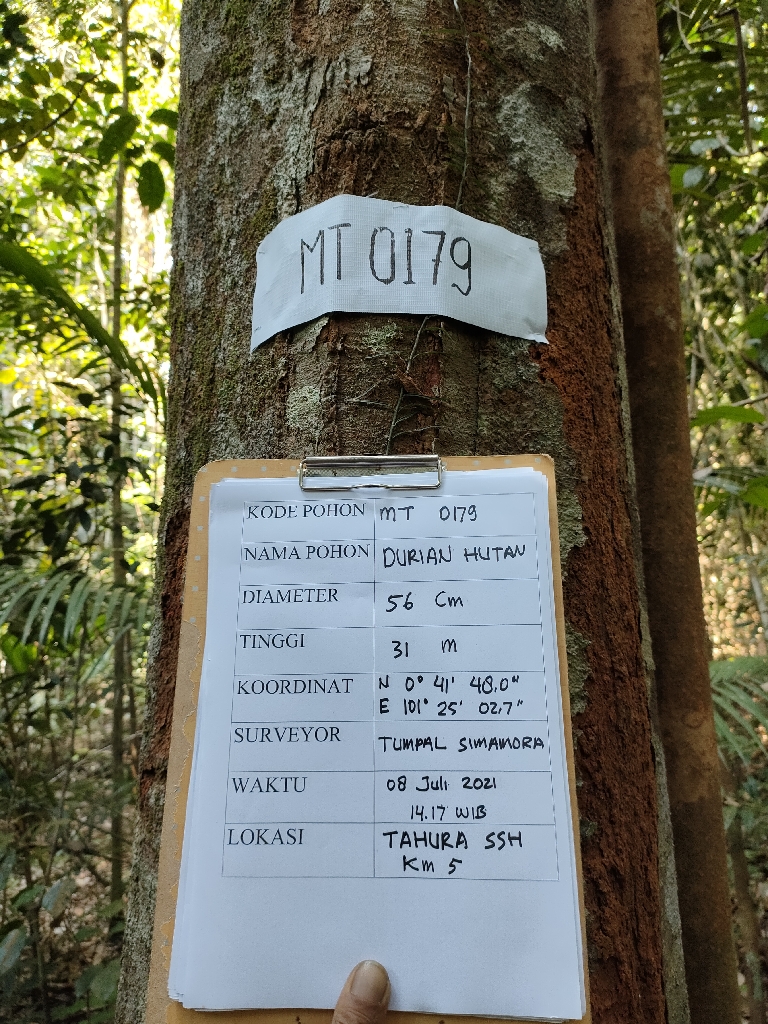 MT 0179
KODE POHON MT 0179
NAMA POHON DURIAN HUTAN
DIAMETER 56 Cm
TINGGI 31 m
KOORDINAT N 0° 41' 48.0"
E 101° 25' 02.7"
SURVEYOR TUMPAL SIMAMORA
WAKTU 08 Juli 2021
14.17 WIB
LOKASI TAHURA SSH
Km 5